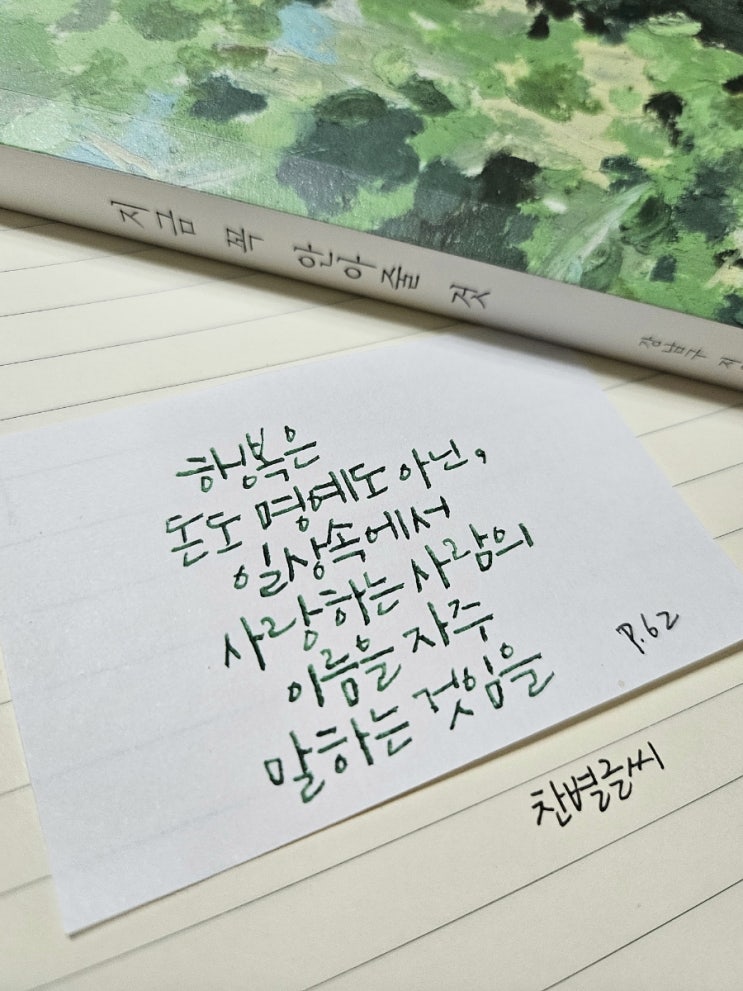 지금 꼭 안아줄 것
강남구 지
행복은
돈도 명예도 아닌,
일상속에서
사랑하는 사람의
이름을 자주
말하는 것임을
P.62
찬별글씨